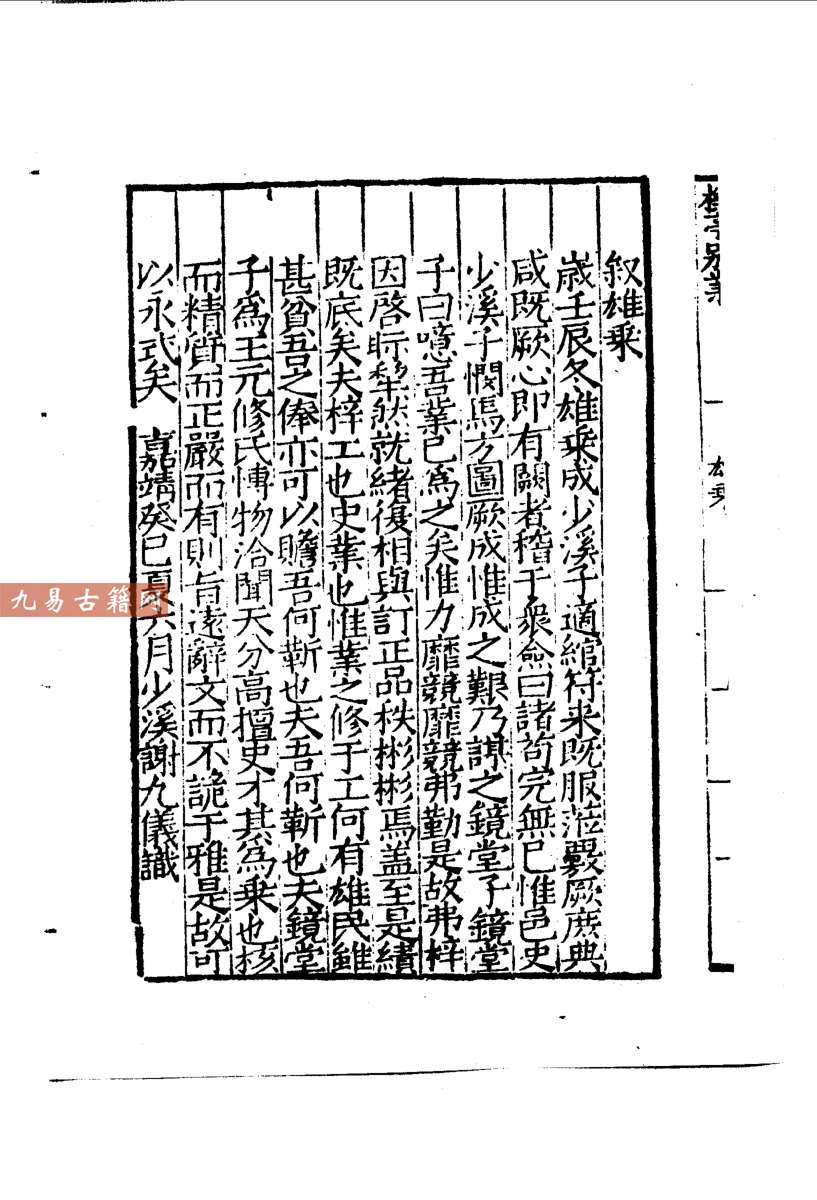 叙雄乗
歳壬辰冬雄乗成少溪子適綰符来既服蒞覈厥庶典
咸既厥心即有闕者稽于衆僉曰諸苟完無已惟邑史
少溪子憫焉方圖厥成惟成之艱乃謀之鏡堂子鏡堂
子曰噫吾業已爲之矣惟力靡競靡競弗勤是故弗梓
因啓眎犂然就緒復相與訂正品秩彬彬焉盖至是績
既底矣夫梓工也史業也惟業之修于工何有雄民雖
甚貧吾之俸亦可以贍吾何靳也夫吾何靳也夫鏡堂
子爲王元修氏愽物洽聞天分高擅史才其爲乗也核
而精質而正嚴而有則旨逺辭文而不詭于雅是故可
以永式矣 嘉靖癸巳夏六月少溪謝九儀識
雄乗
九易古籍网